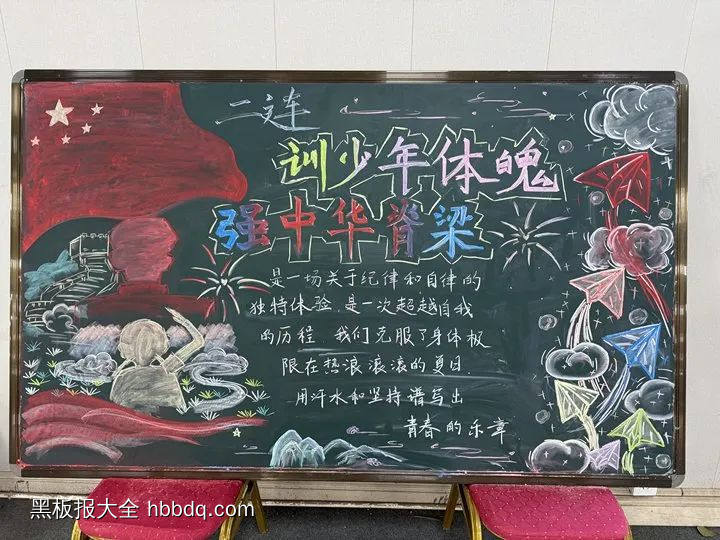 二连
训少年体魄
强中华脊梁
是一场关于纪律和自律的
独特体验.是一次超越自我
的历程.我们克服了身体极
限在热浪滚滚的夏日.
用汗水和坚持谱写出
青春的乐章
黑板报大全 hbbdq.com